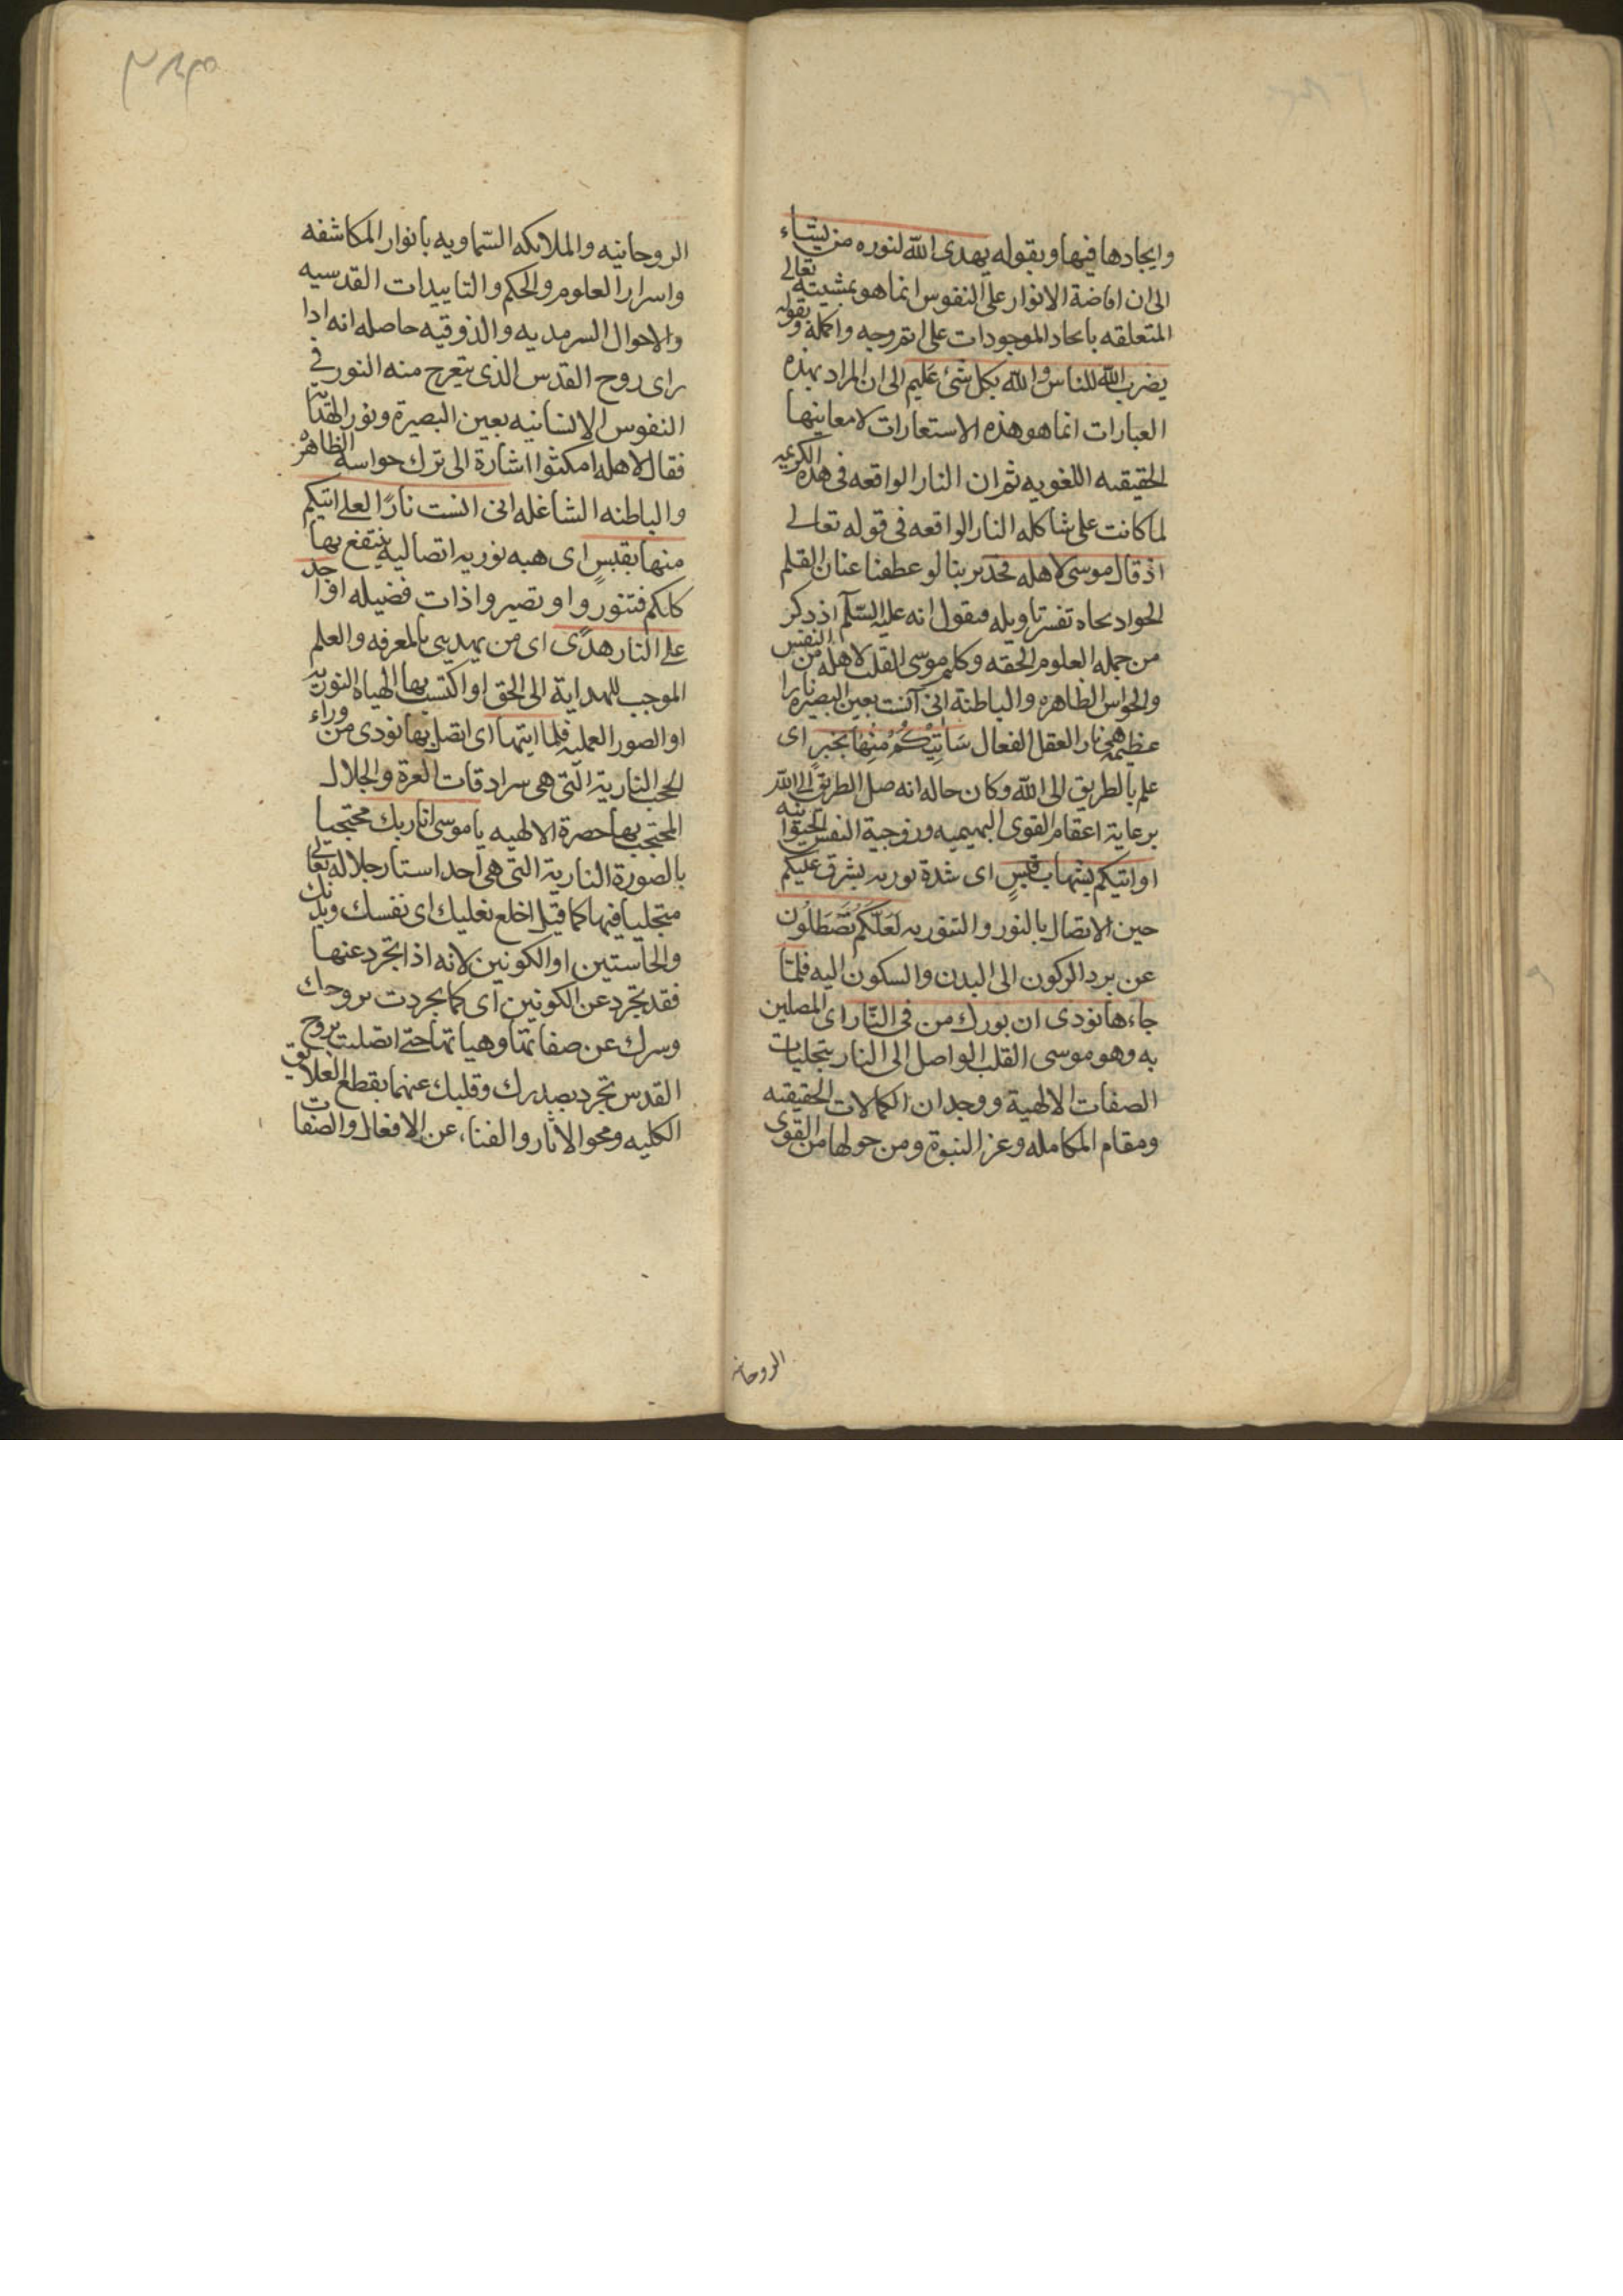 وايجادها فيها وبقوله يهدى الله لنوره من يشاء
الى ان افاضة الانوار على النفوس انما هو بمشيته تعالى
المتعلقه بايجاد الموجودات على اتم وجه واكمله وبقوله
يضرب الله للناس والله بكل شئ عليم الى ان المراد بهذه
العبارات انما هو هذه الاستعارات لا معاينها
الحقيقيه اللغويه ثم ان النار الواقعه فى هذه الكريمه
لما كانت على شاكله النار الواقعه فى قوله تعالى
اذ قال موسى لاهله فحدير بنا لو عطفنا عنان القلم
الجواد تجاه تفسير تاويله فنقول انه عليه السلام اذ ذكر
من جمله العلوم الحقه وكلم موسى القلب لاهله من النفس
والحواس الظاهره والباطنة انى آنست بعين البصيره نارا
عظيمه هى نار العقل الفعال سَاتِيْكُمْ مِنْهَا بخبرٍ اى
علم بالطريق الى الله وكان حاله انه ضل الطريق الى الله
برعاية اغنام القوى البهيميه وزوجية النفس الحيوانيه
او اتيكم بشهاب قبسٍ اى شدة نوريه يشرق عليكم
حين الاتصال بالنور والتنوريه لَعَلَّكُمْ تَصْطَلُون
عن برد الركون الى البدن والسكون اليه فلمّا
جاءها نودى ان بورك من فى النّار اى المصلين
به وهو موسى القلب الواصل الى النار بتجليات
الصفات الالهية ووجدان الكمالات الحقيقيه
ومقام المكامله وعز النبوة ومن حولها من القوى
الروحانيه
الروحانيه والملائكه السّماويه بانوار المكاشفه
واسرار العلوم والحكم والتاييدات القدسيه
والاحوال السرمديه والذوقيه حاصله انه اذا
راى روح القدس الذى يتعرج منه النور فى
النفوس الانسانيه بعين البصيرة ونور الهدايه
فقال لاهله امكثوا اشارة الى ترك حواسه الظاهره
والباطنه الشاغله انى انست نارًا لعلى اتيكم
منها بقبسٍ اى هبه نوريه اتصاليه ينتفع بها
كلكم فتنوروا وتصيروا ذات فضيله او اجد
على النار هدًى اى من يهدينى بالمعرفه والعلم
الموجب للهداية الى الحق او اكتسب بها الهياه النوريه
او الصور العمليه فلما ايتها اى اتصل بها نودى من وراء
الحجب النارية التى هى سرادقات العزة والجلال
المحتجب بها حضرة الالهيه يا موسى انا ربك محتجبا
بالصورة النارية التى هى احد استار جلاله تعالى
متجليا فيها كما قيل اخلع نعليك اى نفسك وبدنك
والحاستين او الكونين لانه اذا تجرد عنها
فقد تجرد عن الكونين اى كما تجردت بروحك
وسرك عن صفاتها وهياتها حتى اتصلت بروح
القدس تجرد بصدرك وقلبك عنهما بقطع العلايق
الكليه ومحو الاثار والفناء عن الافعال والصفات